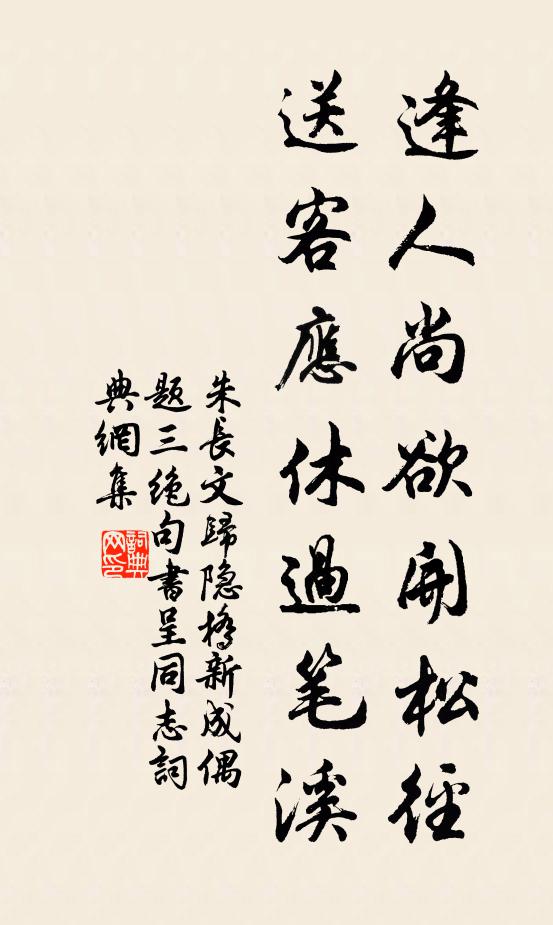 逢人尚欲開松徑
送客應休過笔溪
朱長文歸隐橋新成偶
題三絶句書呈同志詞
典網集
詞典网印